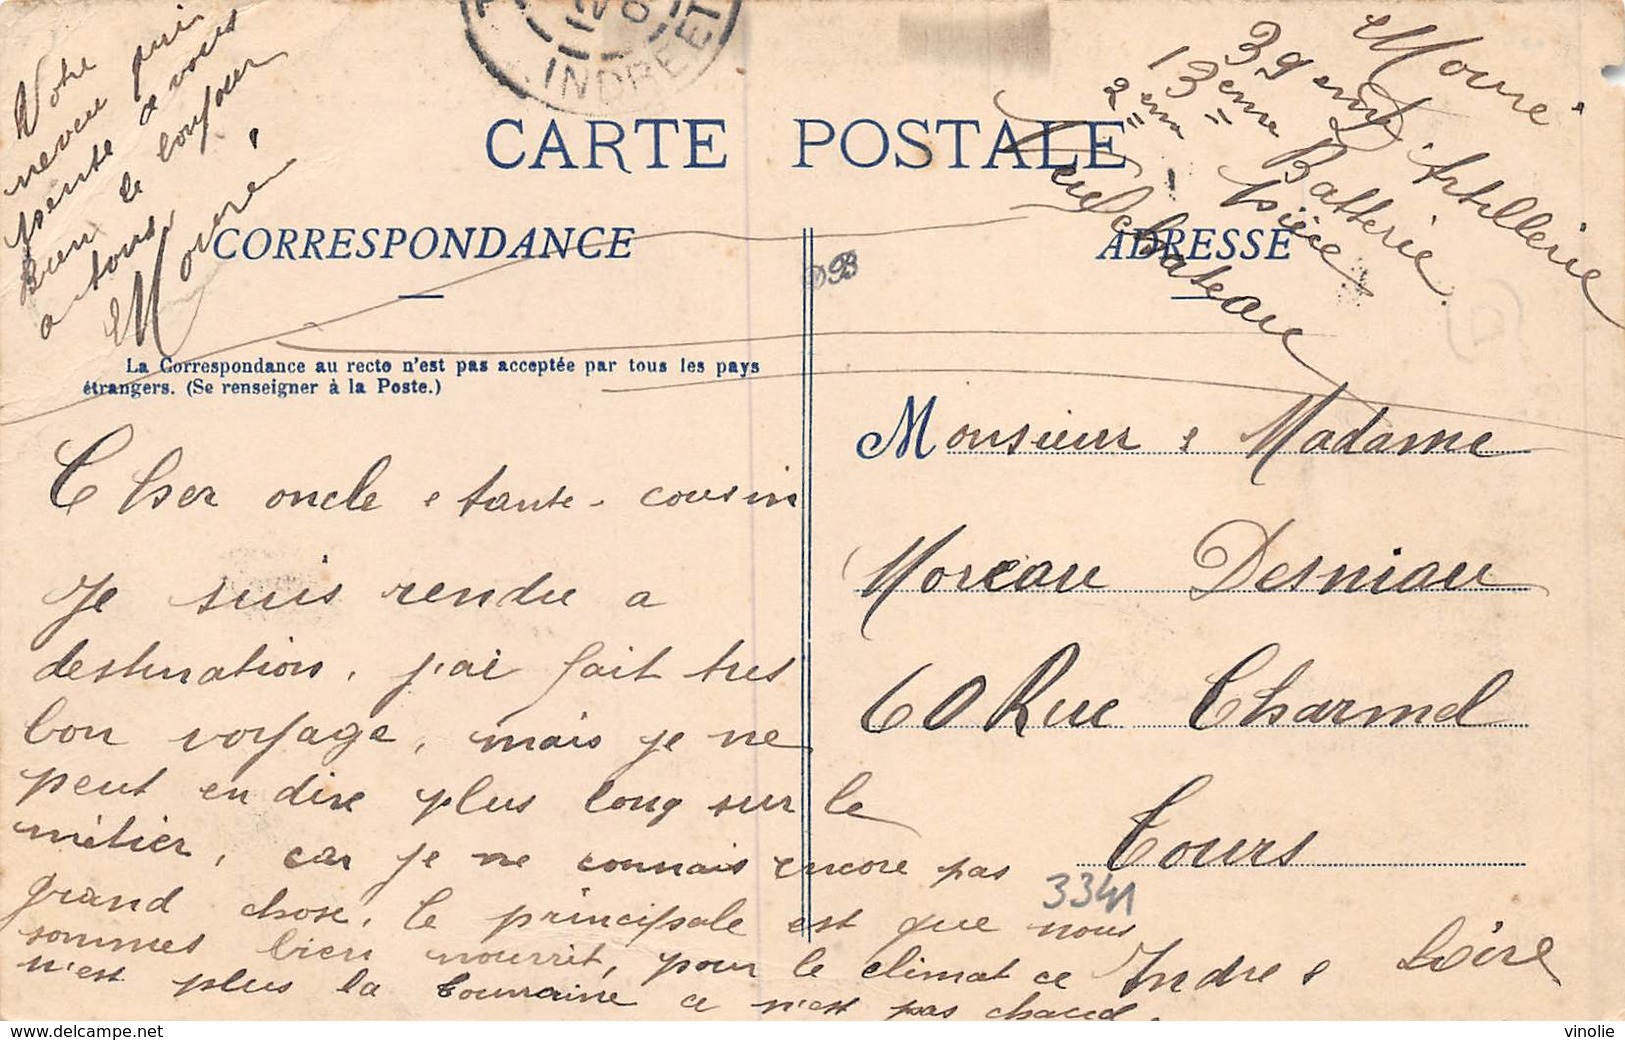 INDRE ET
CARTE POSTALE
CORRESPONDANCE
ADRESSE
DB
La Correspondance au recto n'est pas acceptée par tous les pays
étrangers. (Se renseigner à la Poste.)
Mouré
39 eme d'Artillerie
13 eme Batterie
2 em Pièce
Neufchateau
Cher oncle e tante - cousin
Je suis rendu a
destination, j'ai fait tres
bon voyage, mais je ne
peut en dire plus long sur le
métier, car je ne connais encore pas
grand chose, le principale est que nous
sommes bien nourrit, pour le climat ce
n'est plus la Tourraine ce n'est pas chaud.
Votre
neveu qui
pente a vous
Bien le bonjour
a tous
Mouré
Monsieur e Madame
Moreau Desniau
60 Rue Charmel
Tours
3341
Indre e Loire
delcampe.net
vinolie